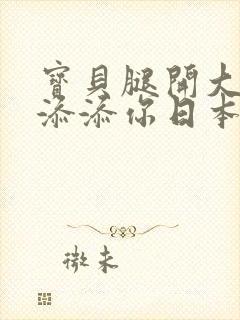 寶貝腿開大
添添你日本
微末